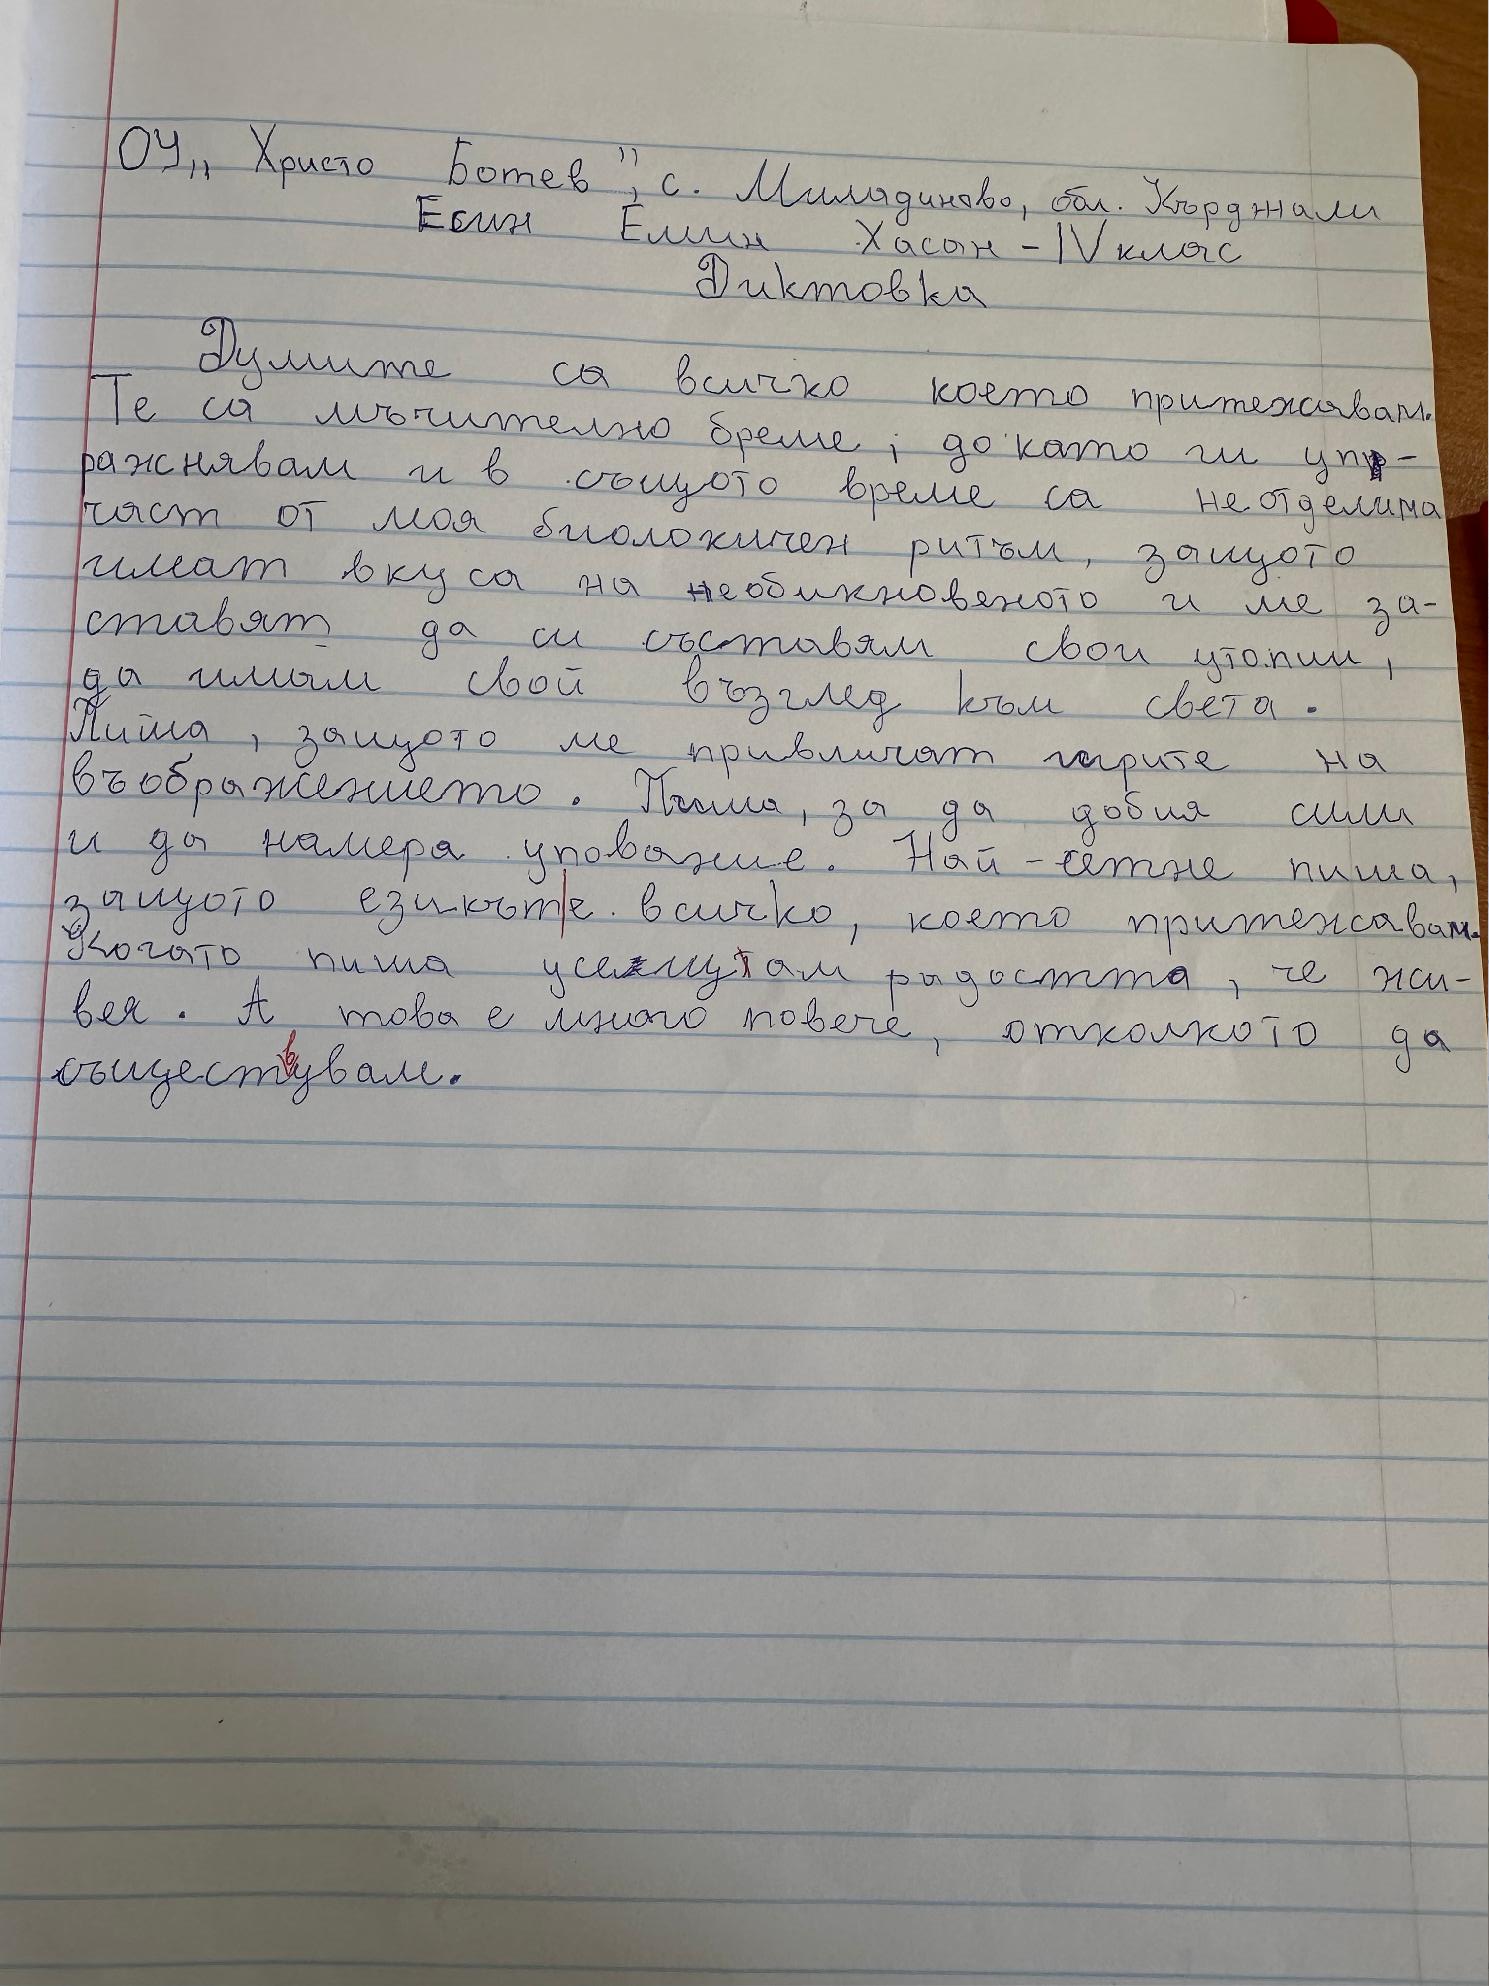 ОУ „Христо Ботев", с. Миладиново, обл. Кърджали
Есин Емин Хасан - IV клас
Диктовка
Думите са всичко което притежавам.
Те са мъчително бреме, докато ги уп-
ражнявам и в същото време са неотделима
част от моя биоложичен ритъм, защото
имат вкуса на необикновеното и ме за-
ставят да си съставям свои утопии,
да имам свой възглед към света.
Пиша, защото ме привличат игрите на
въображението. Пиша, за да добия сили
и да намера упование. Най-сетне пиша,
защото езикът е всичко, което притежавам.
Когато пиша усещам радостта, че жи-
вея. А това е много повече, отколкото да
съществувам.